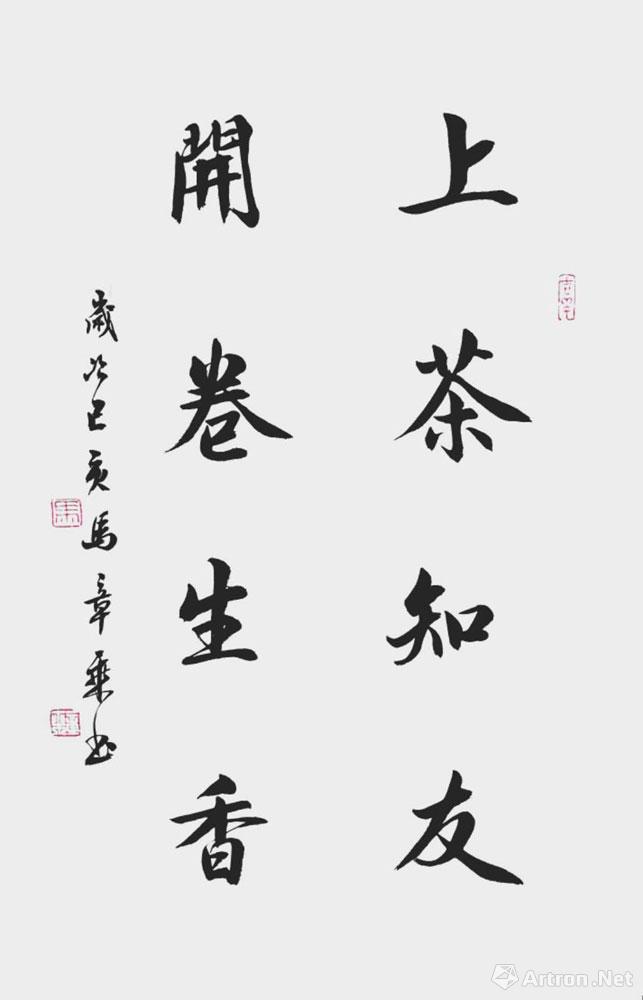 上茶知友
開卷生香
歲次己亥馬章乘書
Artron.Net